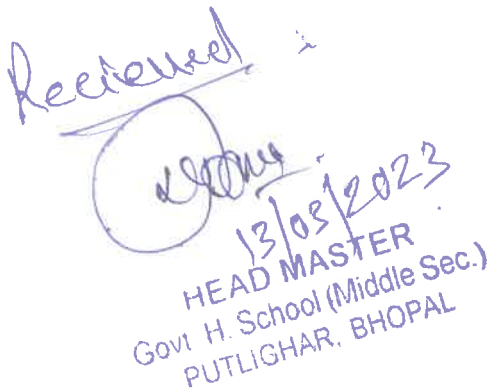 Recieved
13/03/2023
HEAD MASTER
Govt H. School (Middle Sec.)
PUTLIGHAR, BHOPAL